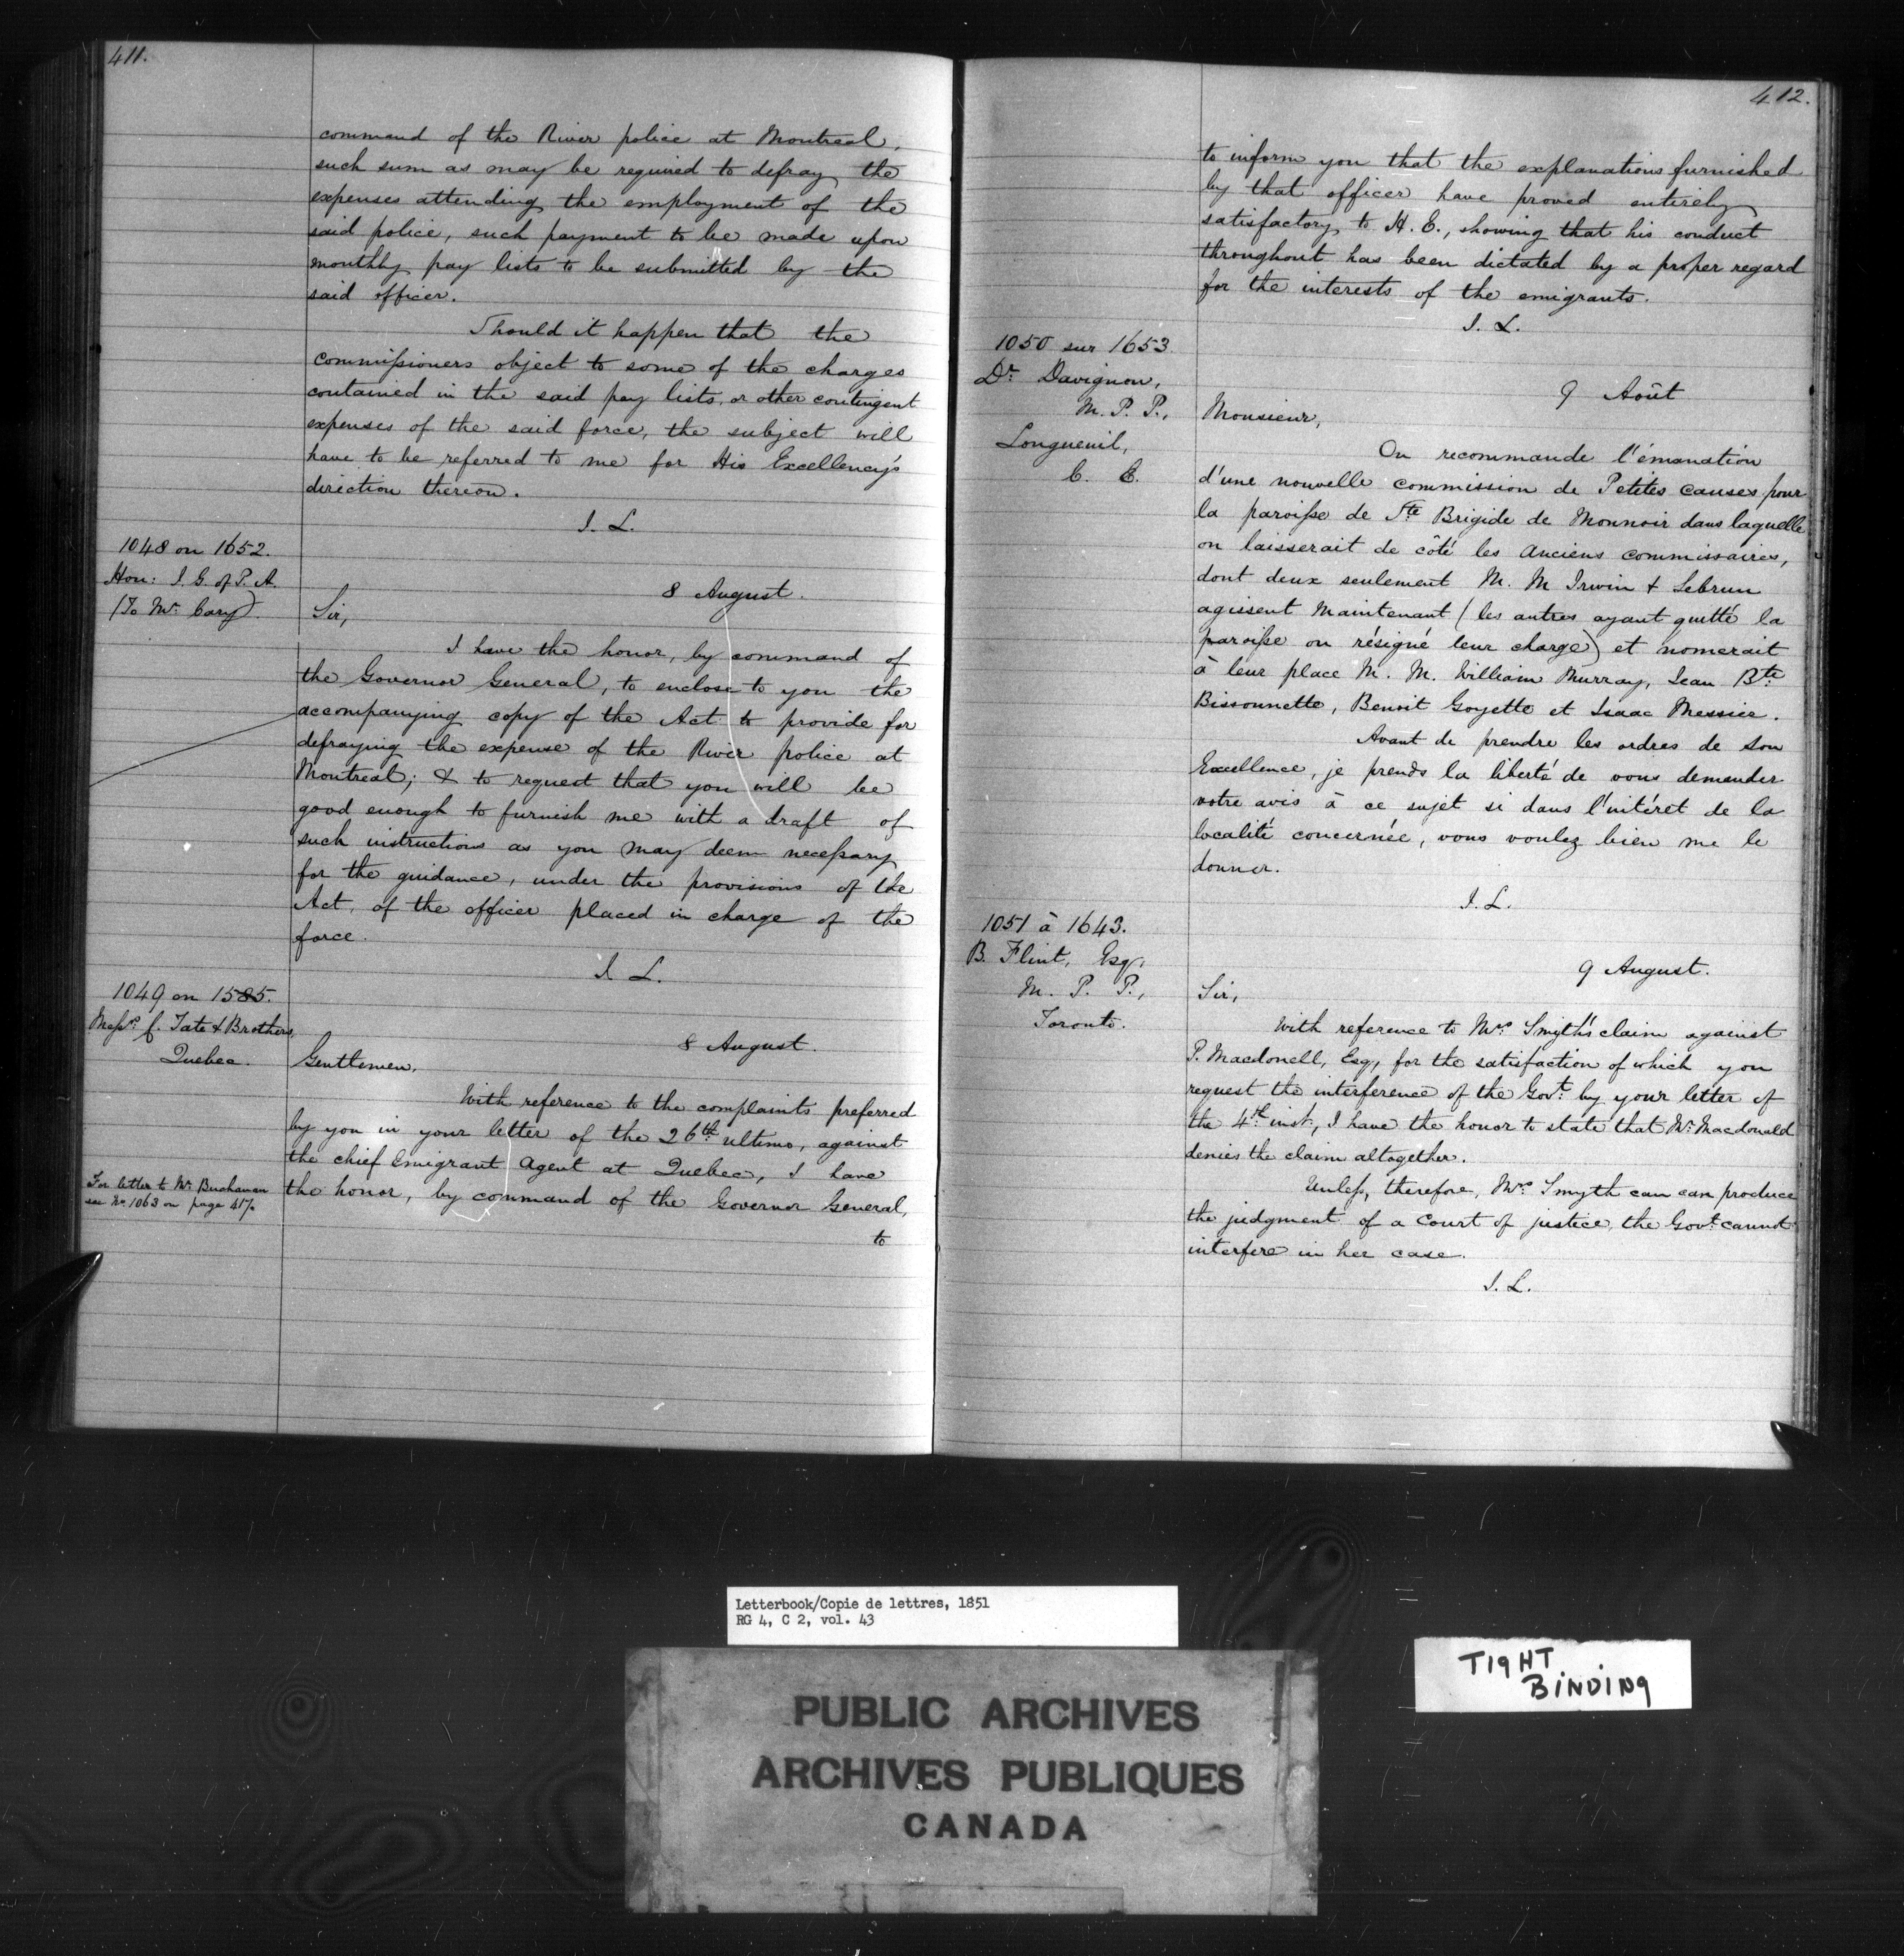 411.
command of the River police at Montreal,
such sum as may be required to defray the
expenses attending the employment of the
said police, such payment to be made upon
monthly pay lists to be submitted by the
said officer.
Should it happen that the
commissioners object to some of the charges
contained in the said pay lists, or other contingent
expenses of the said force, the subject will
have to be referred to me for His Excellency's
direction thereon.
J. L.
1048 on 1652.
Hon: I. G. of P. A.
(To Mr. Cary)
8 August.
Sir,
I have the honor, by command of
the Governor General, to enclose to you the
accompanying copy of the Act to provide for
defraying the expense of the River police at
Montreal; & to request that you will be
good enough to furnish me with a draft of
such instructions as you may deem necessary
for the guidance, under the provisions of the
Act, of the officer placed in charge of the
force.
J. L.
1049 on 1585.
Messrs. J. Tate & Brothers,
Quebec.
8 August.
Gentlemen,
With reference to the complaints preferred
by you in your letter of the 26th ultimo, against
the chief Emigrant Agent at Quebec, I have
the honor, by command of the Governor General,
to
For letter to Mr. Buchanan
see No. 1063 on page 417.
412.
to inform you that the explanations furnished
by that officer have proved entirely
satisfactory to H. E., showing that his conduct
throughout has been dictated by a proper regard
for the interests of the emigrants.
J. L.
1050 sur 1653
Dr. Davignon,
M. P. P.,
Longueuil,
C. E.
9 Août
Monsieur,
On recommande l'émanation
d'une nouvelle commission de Petites causes pour
la paroisse de Ste Brigide de Monnoir dans laquelle
on laisserait de côté les anciens commissaires,
dont deux seulement M. M Irwin & Lebrun
agissent maintenant (les autres ayant quitté la
paroisse ou résigné leur charge) et nomerait
à leur place M. M. William Murray, Jean Bte
Bissonnette, Benoit Goyette et Isaac Messier.
Avant de prendre les ordres de Son
Excellence, je prends la liberté de vous demander
votre avis à ce sujet si dans l'intéret de la
localité concernée, vous voulez bien me le
donner.
J. L.
1051 à 1643.
B. Flint, Esq,
M. P. P.,
Toronto.
9 August.
Sir,
With reference to Mrs. Smyth's claim against
P. Macdonell, Esq, for the satisfaction of which you
request the interference of the Govt. by your letter of
the 4th inst, I have the honor to state that Mr. Macdonald
denies the claim altogether.
Unless, therefore, Mrs. Smyth can can produce
the judgment of a Court of justice, the Govt. cannot
interfere in her case.
J. L.
Letterbook/Copie de lettres, 1851
RG 4, C 2, vol. 43
TIGHT
BINDING
PUBLIC ARCHIVES
ARCHIVES PUBLIQUES
CANADA